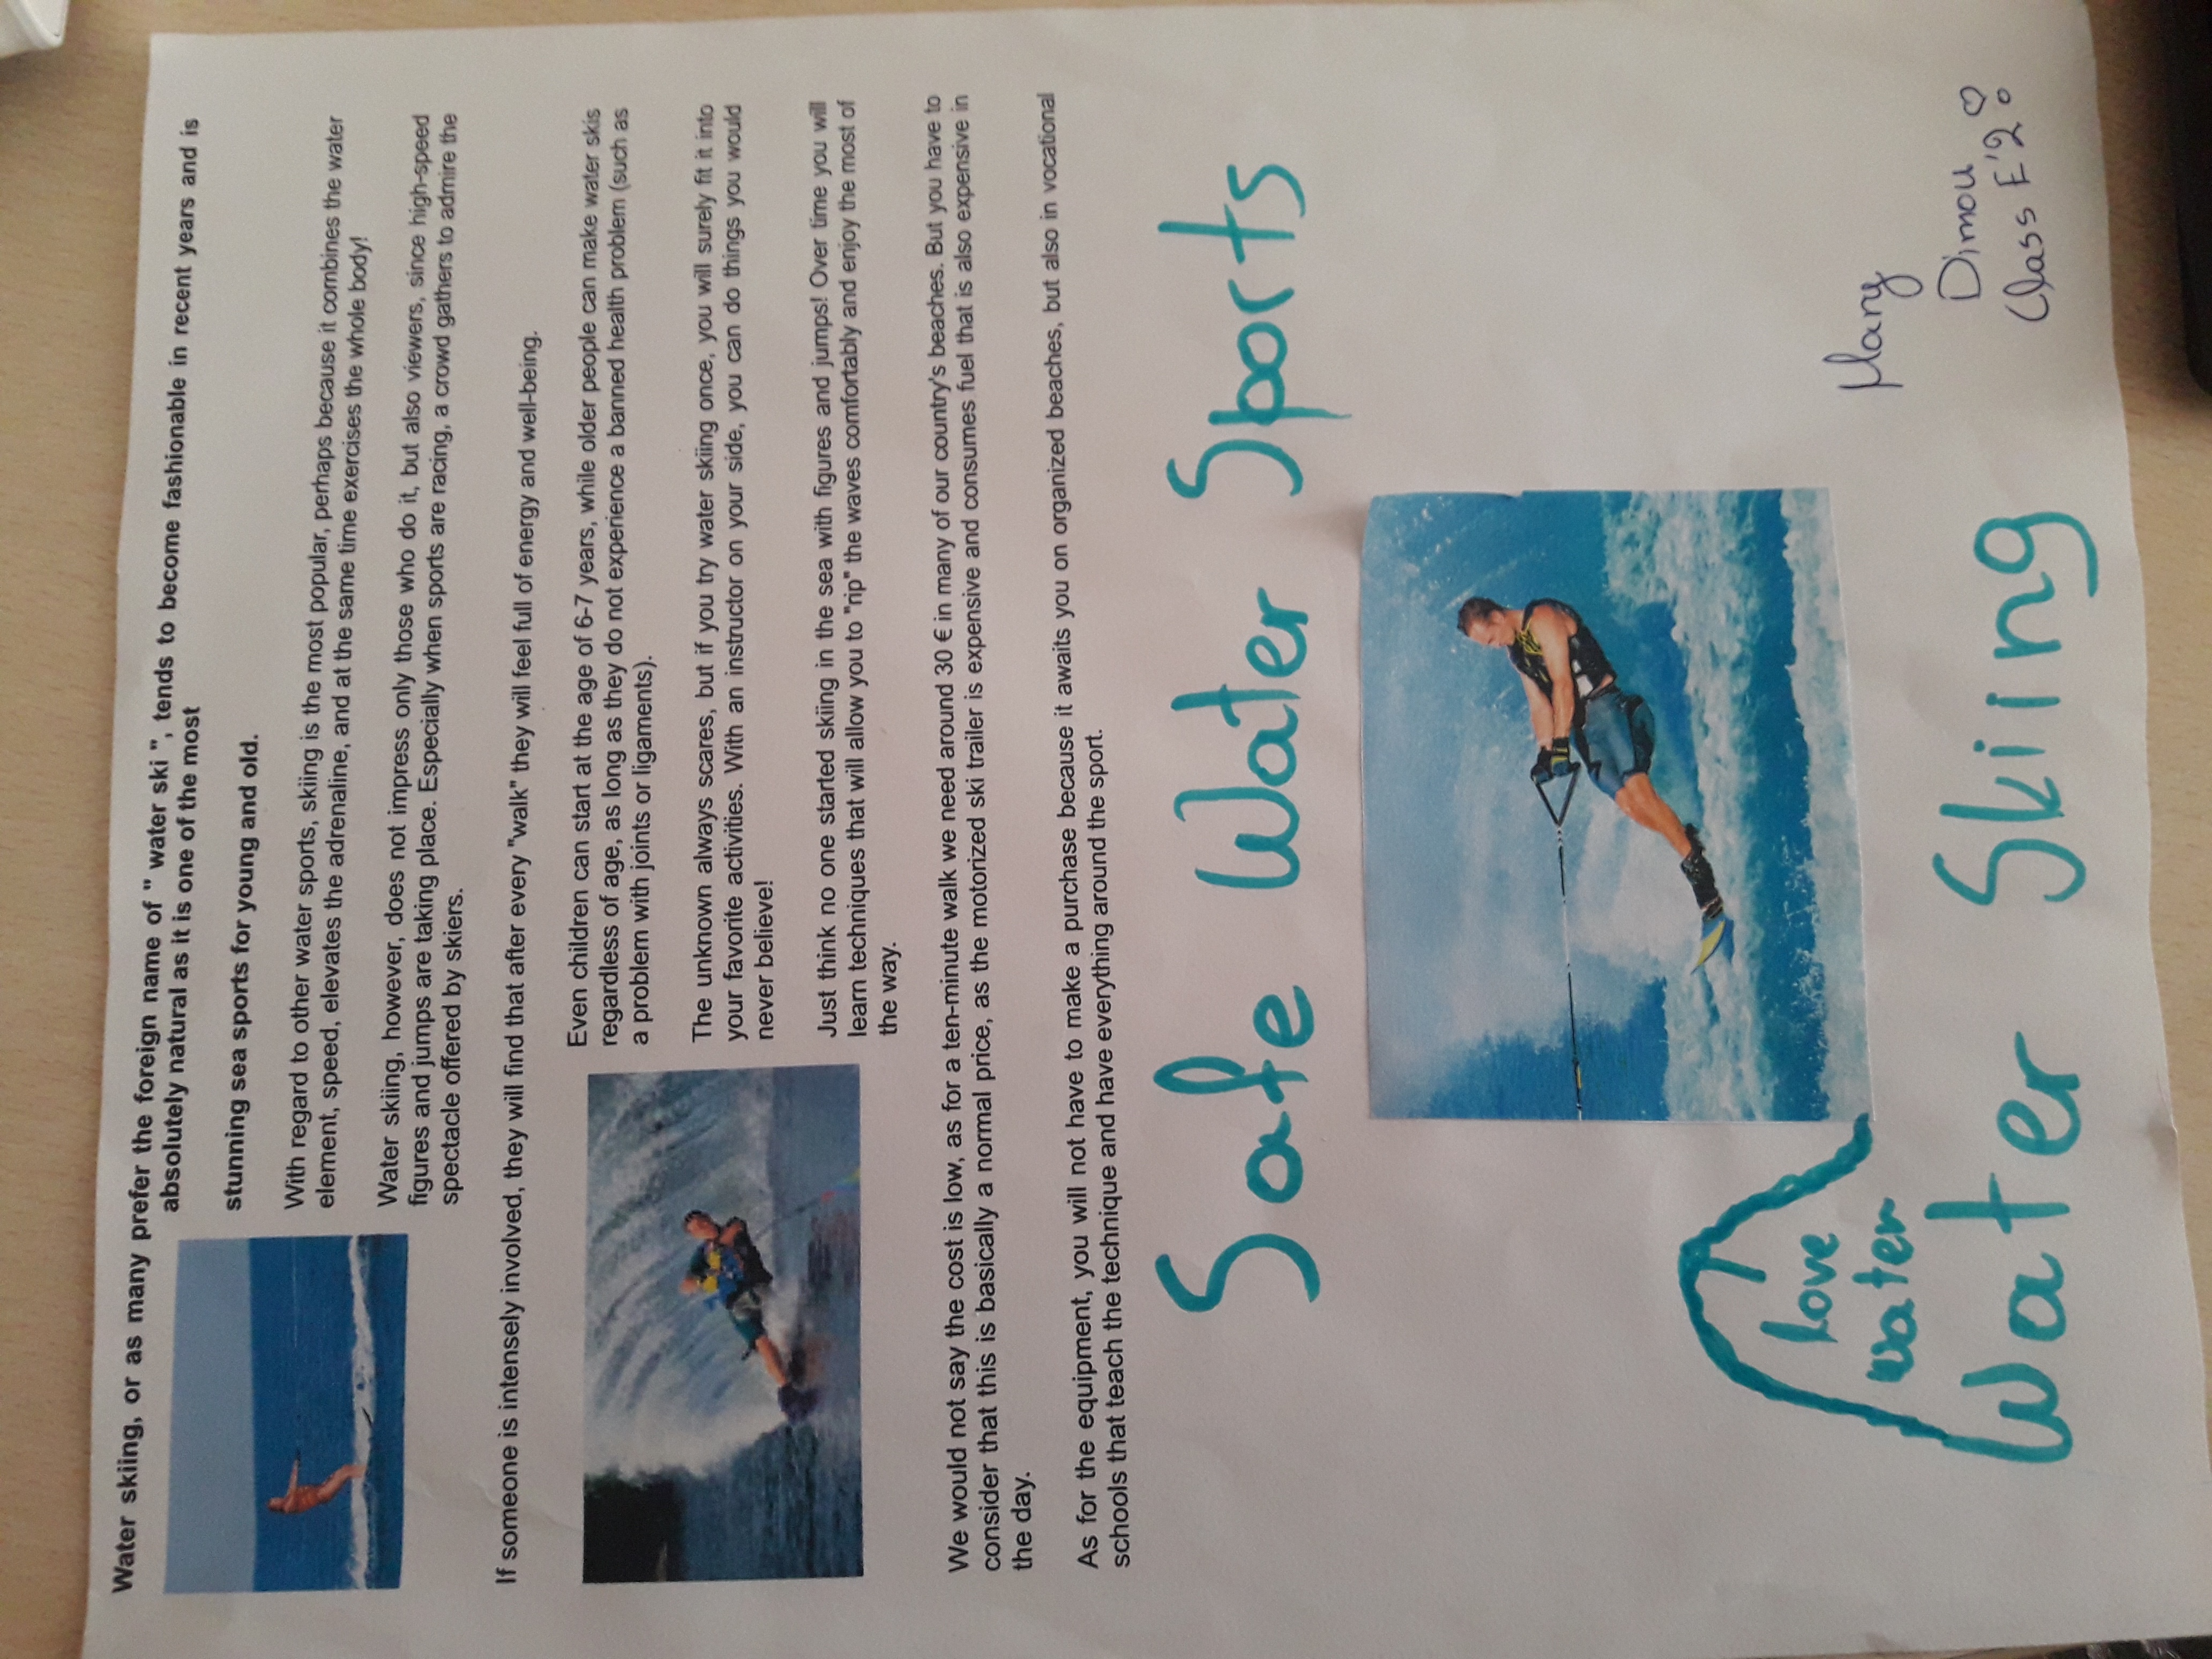 Water skiing, or as many prefer the foreign name of " water ski ", tends to become fashionable in recent years and is
absolutely natural as it is one of the most
stunning sea sports for young and old.
With regard to other water sports, skiing is the most popular, perhaps because it combines the water
element, speed, elevates the adrenaline, and at the same time exercises the whole body!
Water skiing, however, does not impress only those who do it, but also viewers, since high-speed
figures and jumps are taking place. Especially when sports are racing, a crowd gathers to admire the
spectacle offered by skiers.
If someone is intensely involved, they will find that after every "walk" they will feel full of energy and well-being.
Even children can start at the age of 6-7 years, while older people can make water skis
regardless of age, as long as they do not experience a banned health problem (such as
a problem with joints or ligaments).
The unknown always scares, but if you try water skiing once, you will surely fit it into
your favorite activities. With an instructor on your side, you can do things you would
never believe!
Just think no one started skiing in the sea with figures and jumps! Over time you will
learn techniques that will allow you to "rip" the waves comfortably and enjoy the most of
the way.
We would not say the cost is low, as for a ten-minute walk we need around 30 € in many of our country's beaches. But you have to
consider that this is basically a normal price, as the motorized ski trailer is expensive and consumes fuel that is also expensive in
the day.
As for the equipment, you will not have to make a purchase because it awaits you on organized beaches, but also in vocational
schools that teach the technique and have everything around the sport.
Safe Water Sports
love
water
Water Skiing
Mary
Dimou
Class E'2